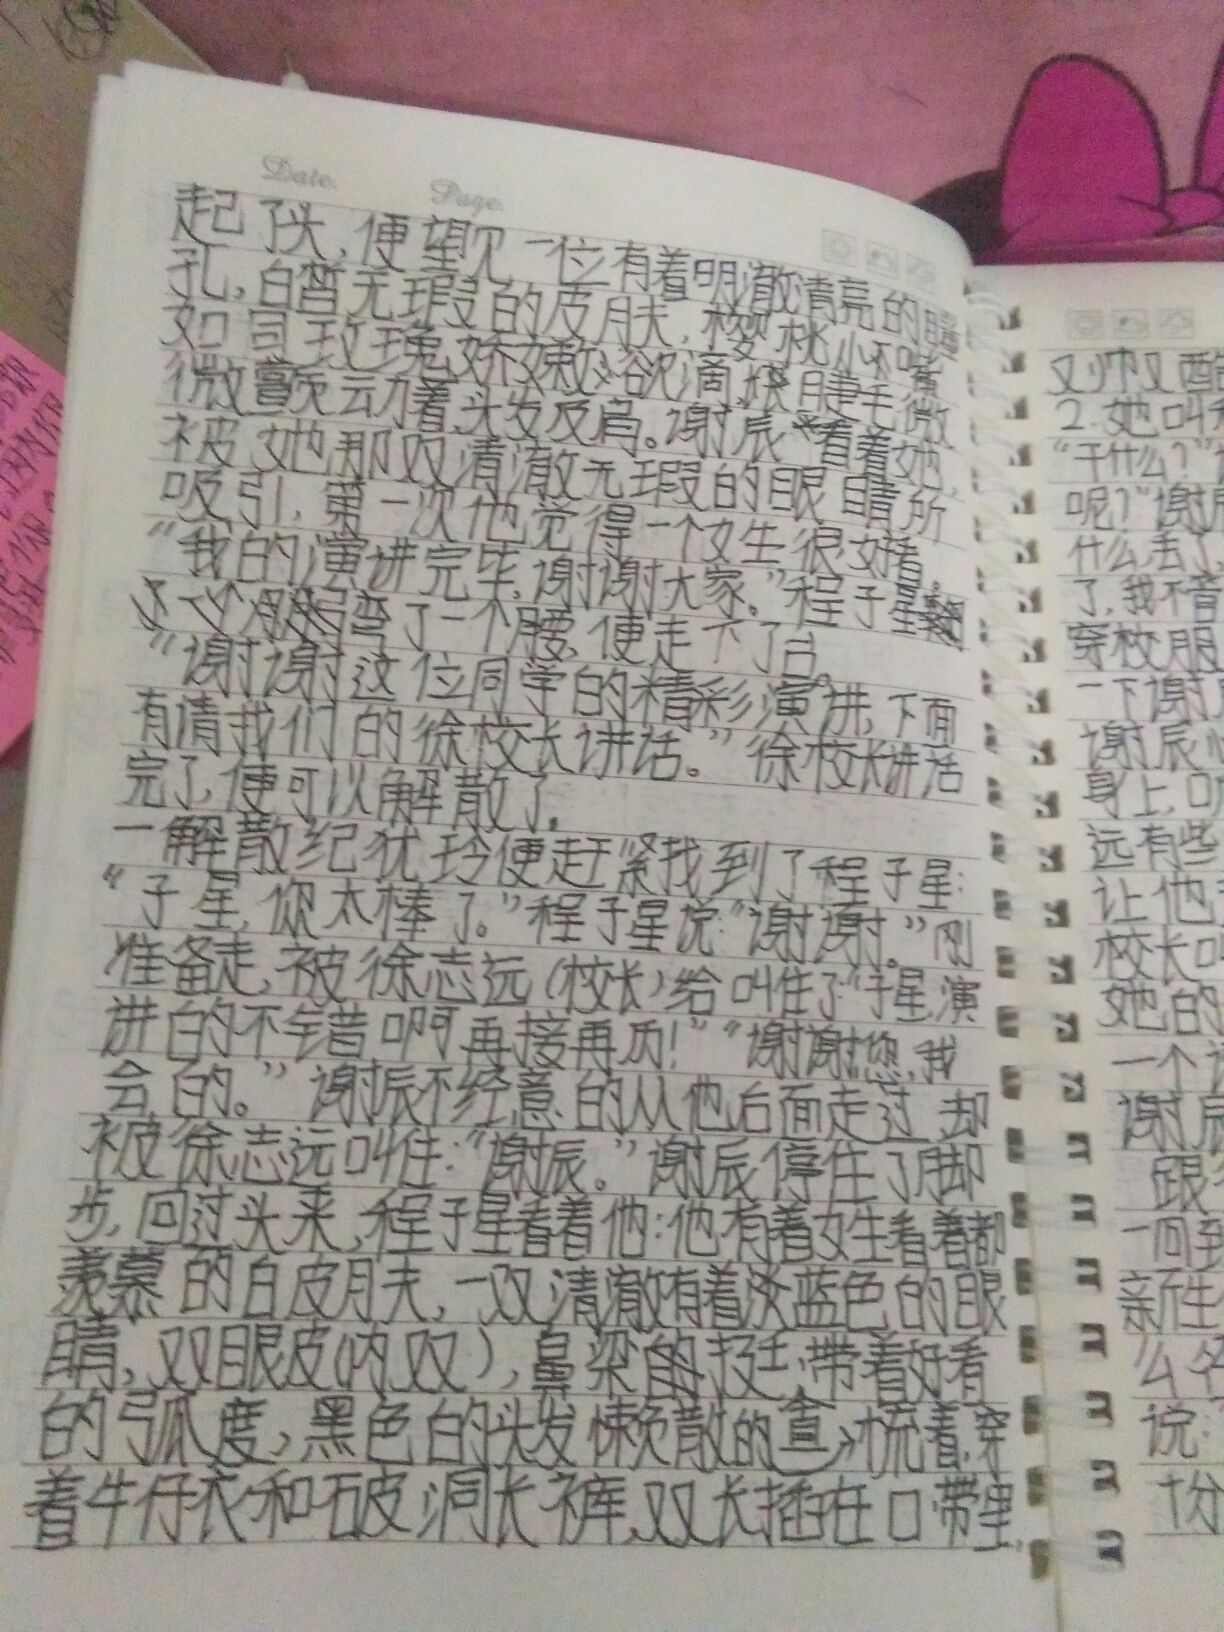 Date.
Page.
起了头，便望见一位有着明澈清亮的瞳
孔，白皙无瑕的皮肤，樱桃小嘴
如同玫瑰娇嫩欲滴，睫毛微
微颤动着，头发及肩。谢辰看着她，
被她那双清澈无瑕的眼睛所
吸引，第一次他觉得一个女生很好看。
“我的演讲完毕，谢谢大家。”程子星
弯了一个腰，便走下了台。
“谢谢这位同学的精彩演讲，下面
有请我们的徐校长讲话。”徐校长讲话
完了，便可以解散了。
一解散纪犹玲便赶紧找到了程子星：
“子星，你太棒了。”程子星说：“谢谢。”刚
准备走，被徐志远（校长）给叫住了“子星，演
讲的不错啊再接再历！”“谢谢您，我
会的。”谢辰不经意的从他后面走过，却
被徐志远叫住：“谢辰。”谢辰停住了脚
步，回过头来，程子星看着他：他有着女生看着都
羡慕的白皮肤，一双清澈有着淡蓝色的眼
睛，双眼皮（内双），鼻梁的挺，带着好看
的弧度，黑色的头发懒散的梳着，穿
着牛仔衣和破洞长裤，双长插在口带里，
又帅又酷
2.她叫
“干什么？”
呢？”谢
什么丢了，
了，我不
穿校服
一下谢
谢辰
身上，
远有些
让他
校长叫
她的
一个
谢辰
跟
一回到
新生
么名
说：
十分